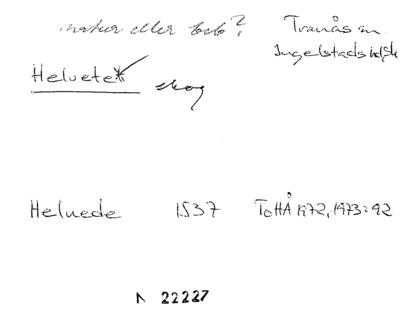 natur eller beb? Tranås sn
Ingelstads hd, Sk
Helvetet skog
Helvede 1537 ToHÅ 1972, 1973:92
N 22227